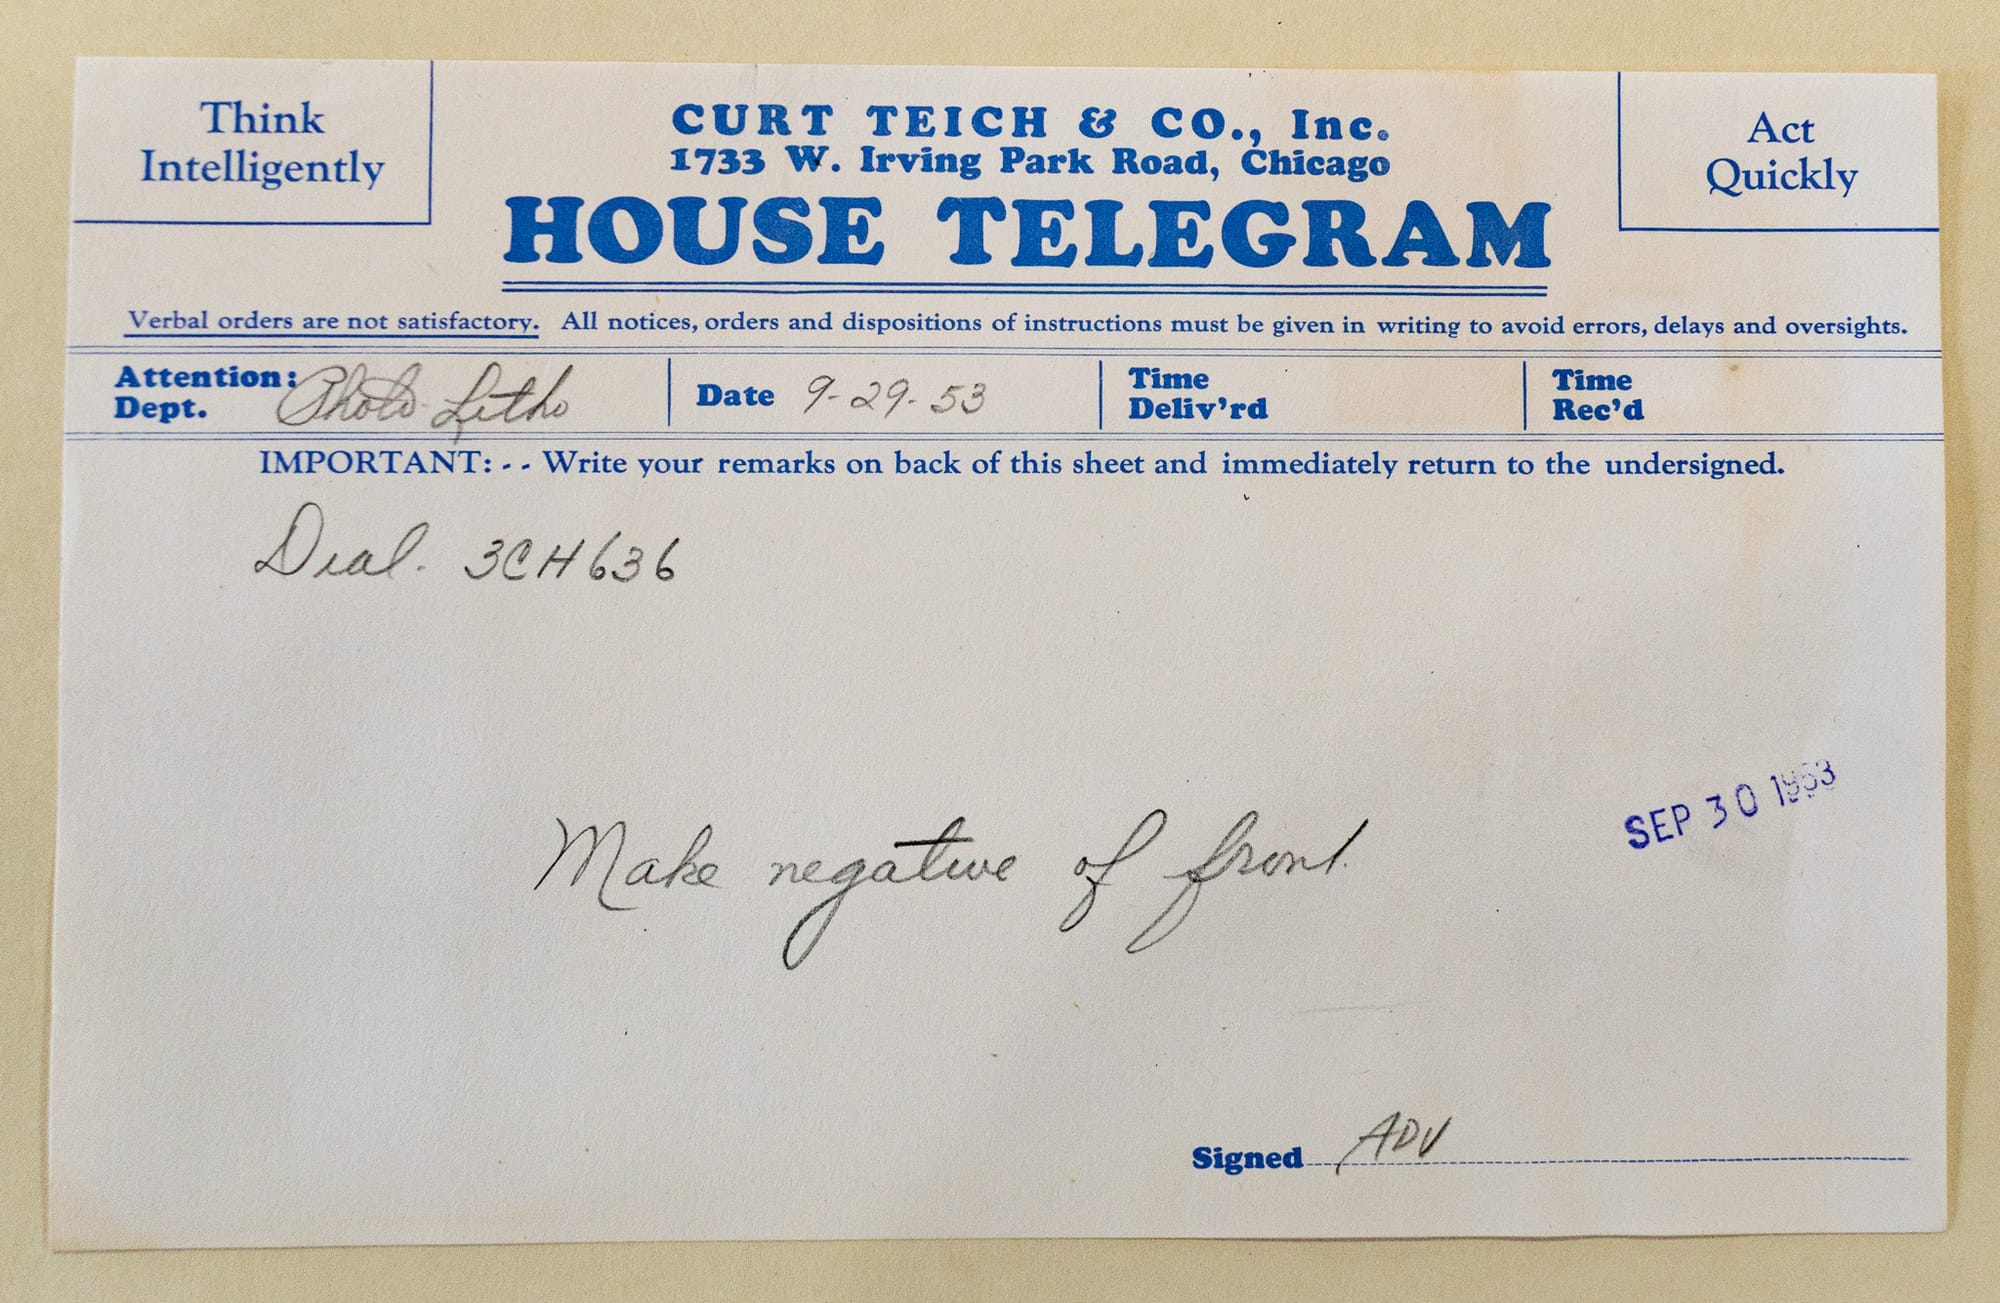 Think
Intelligently
CURT TEICH & CO., Inc.
1733 W. Irving Park Road, Chicago
HOUSE TELEGRAM
Act
Quickly
Verbal orders are not satisfactory. All notices, orders and dispositions of instructions must be given in writing to avoid errors, delays and oversights.
Attention: Dept. Photo-Litho
Date 9-29-53
Time Deliv'rd
Time Rec'd
IMPORTANT: - - Write your remarks on back of this sheet and immediately return to the undersigned.
Dial. 3CH636
Make negative of front.
SEP 30 1953
Signed ADV